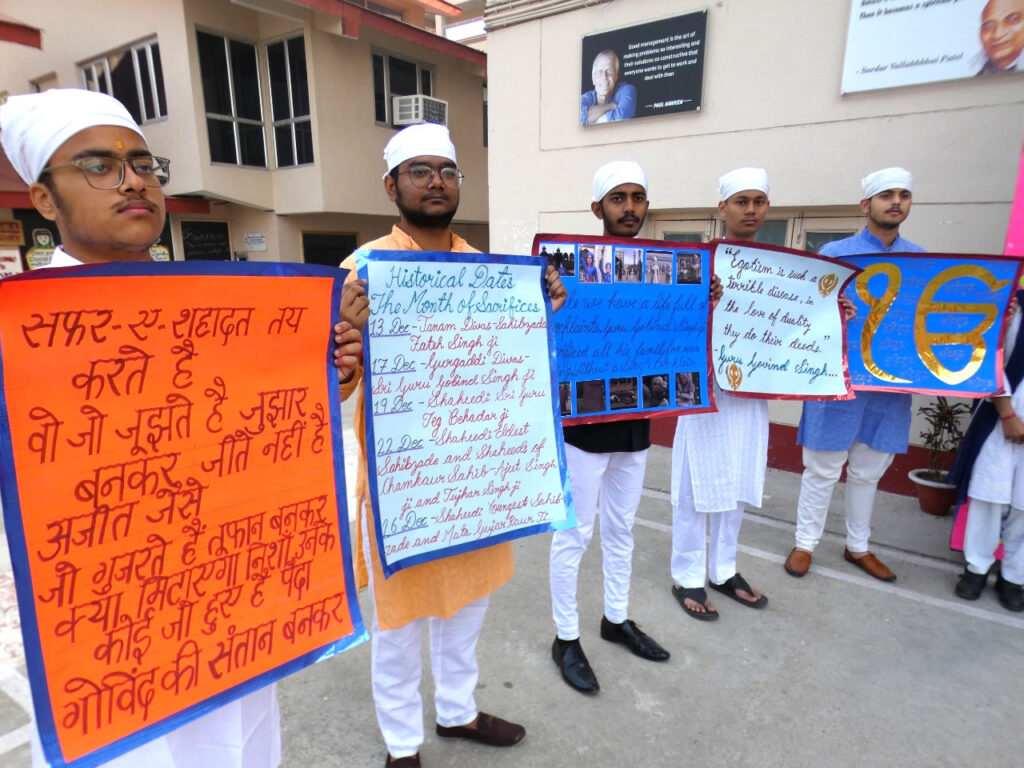 सफर-ए-शहादत तय
करते है
वो जो जूझते है जुझार
बनकर जीते नहीं है
अजीत जैसे
जो गुजरते हैं तूफान बनकर
क्या मिटाएगा निशाँ उनके
कोई जो हुए है पैदा
गोविंद की संतान बनकर
Historical Dates
The Month of Sacrifices
13 Dec - Janam Divas - Sahibzada
Fateh Singh ji
17 Dec - Gurgaddi Divas -
Sri Guru Gobind Singh ji
19 Dec - Shaheedi Sri Guru
Teg Behadar ji
22 Dec - Shaheedi Eldest
Sahibzade and Shaheeds of
Chamkaur Sahib - Ajeet Singh
ji and Jujhar Singh ji
26 Dec - Shaheedi Youngest Sahib-
zade and Mata Gujar Kaur Ji..
we have a life full of
Guru Gobind Singh ji
all his family
"Egotism is such a
terrible disease, in
the love of duality,
they do their deeds."
Guru Govind Singh...
ੴ
Good management is the art of
making problems so interesting and
their solutions so constructive that
everyone wants to get to work and
deal with then
PAUL HAWKEN
- Sardar Vallabhbhai Patel